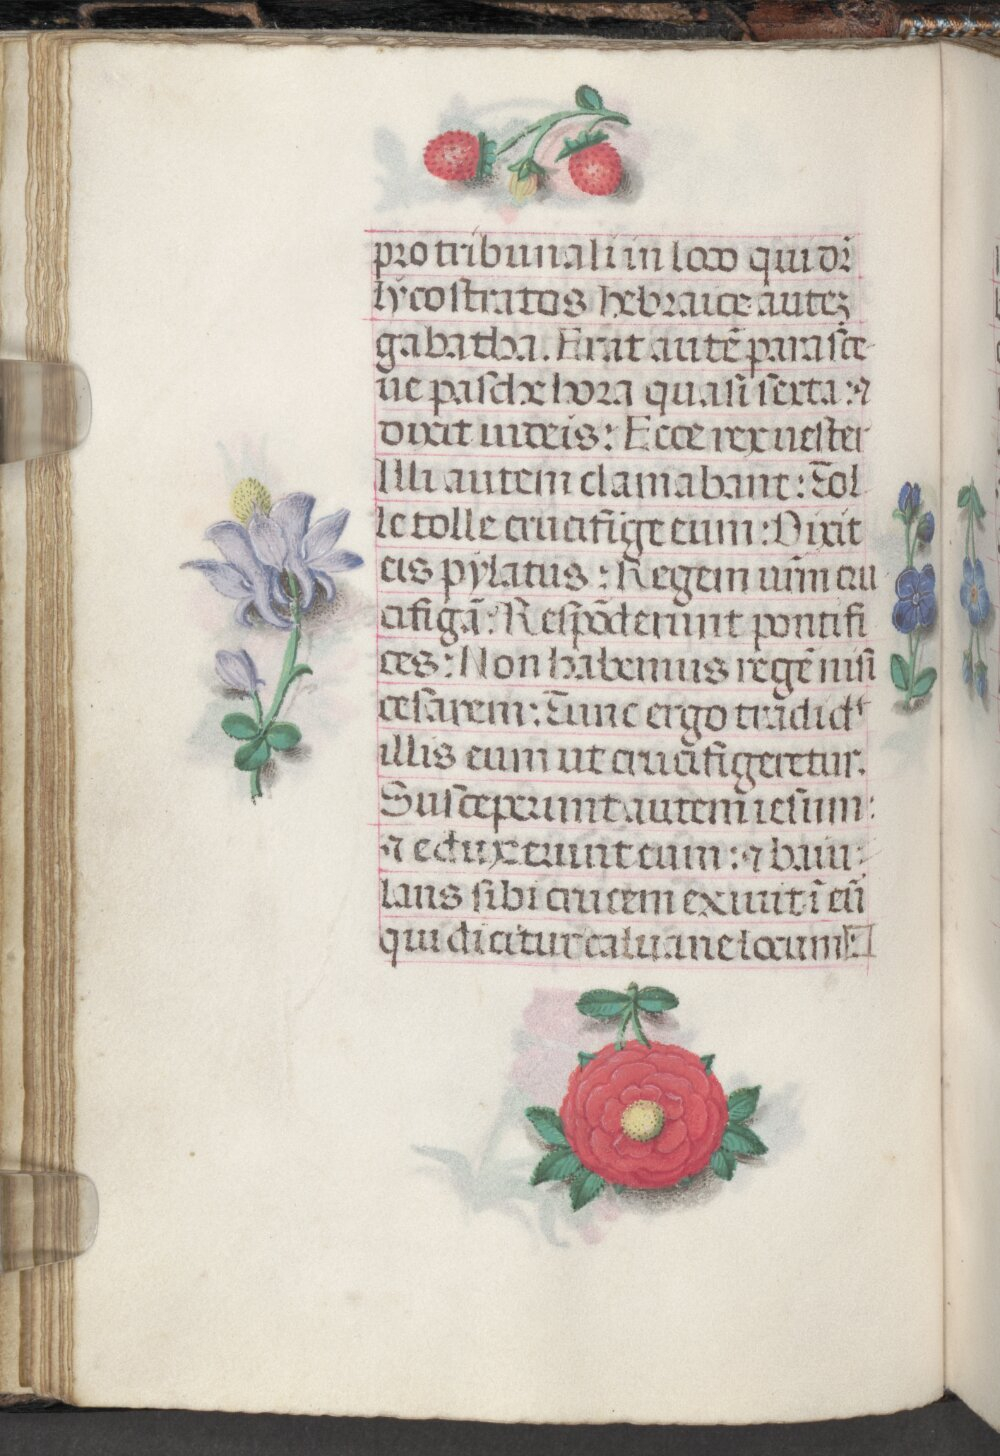 pro tribunali in loco qui dr̄
lycostratos hebraice autez
gabatha. Erat autē parasce
ue pasche hora quasi sexta: ⁊
dixit iudeis: Ecce rex uester
Illi autem clamabant: Tol
le tolle crucifige eum: Dixit
eis pylatus: Regem urm̄ cru
cifigā: Respōderunt pontifi
ces: Non habemus regē nisi
cesarem: Tunc ergo tradidᵗ
illis eum ut crucifigeretur.
Susceperunt autem iesum:
⁊ eduxerunt eum: ⁊ baiu
lans sibi crucem exiuit ī eū
qui dicitur caluarie locum: